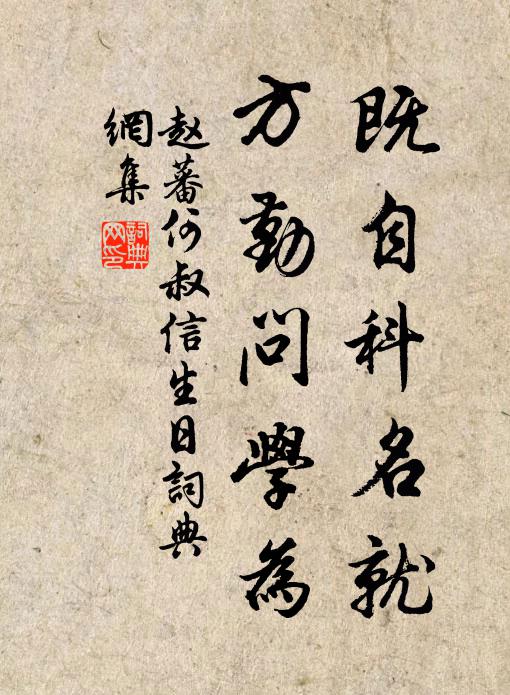 既自科名就
方勤問學為
赵蕃何叔信生日詞典
網集
詞典
网印